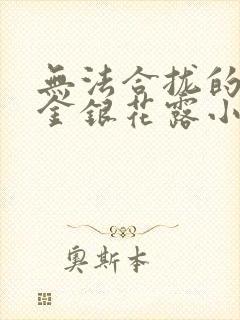 無法合拢的
金銀花露小
奥斯本